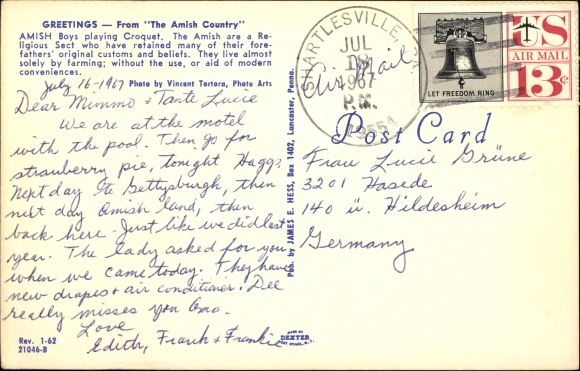 GREETINGS — From "The Amish Country"
AMISH Boys playing Croquet. The Amish are a Re-
ligious Sect who have retained many of their fore-
fathers' original customs and beliefs. They live almost
solely by farming; without the use, or aid of modern
conveniences.
Photo by Vincent Tortora, Photo Arts
July 16-1967
Dear Mimmo + Tante Lucie
We are at the motel
with the pool. Then go for
strawberry pie, tonight Hagg?
Next day to Gettysburgh, then
next day Amish land, then
back here. Just like we did last
year. The lady asked for you
when we came today. They have
new drapes + air conditioner. Dee
really misses you Omo.
Love
Edith, Frank + Frankie
Rev. 1-62
21046-B
Pub. by JAMES E. HESS, Box 1402, Lancaster, Penna.
MADE BY
DEXTER
WEST NYACK, N.Y.
SHARTLESVILLE, PA.
JUL
1967
P.M.
19554
Air Mail
LET FREEDOM RING
US
AIR MAIL
13c
Post Card
Frau Lucie Grüne
3201 Hasede
140 ü. Hildesheim
Germany